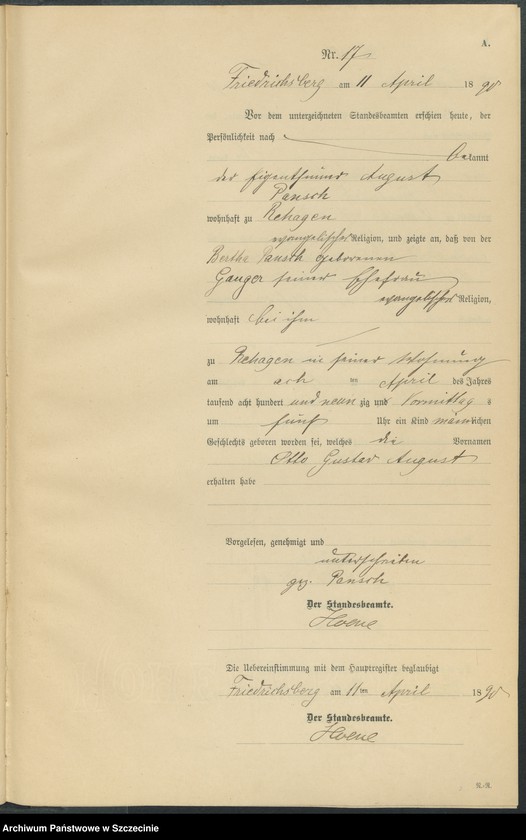 A.
Nr. 17
Friedrichsberg am 11 April 1890
Vor dem unterzeichneten Standesbeamten erschien heute, der
Persönlichkeit nach
bekannt
der Eigenthümer August
Pansch
wohnhaft zu Rehagen
evangelischer Religion, und zeigte an, daß von der
Bertha Pansch geborenen
Gauger seiner Ehefrau
evangelischer Religion,
wohnhaft bei ihm
zu Rehagen in seiner Wohnung
am ach ten April des Jahres
tausend acht hundert und neunzig und Vormittag s
um fünf Uhr ein Kind männlichen
Geschlechts geboren worden sei, welches die Vornamen
Otto Gustav August
erhalten habe
Vorgelesen, genehmigt und
unterschrieben
gez. Pansch
Der Standesbeamte.
Hoene
Die Uebereinstimmung mit dem Hauptregister beglaubigt
Friedrichsberg am 11ten April 1890
Der Standesbeamte.
Hoene
Archiwum Państwowe w Szczecinie